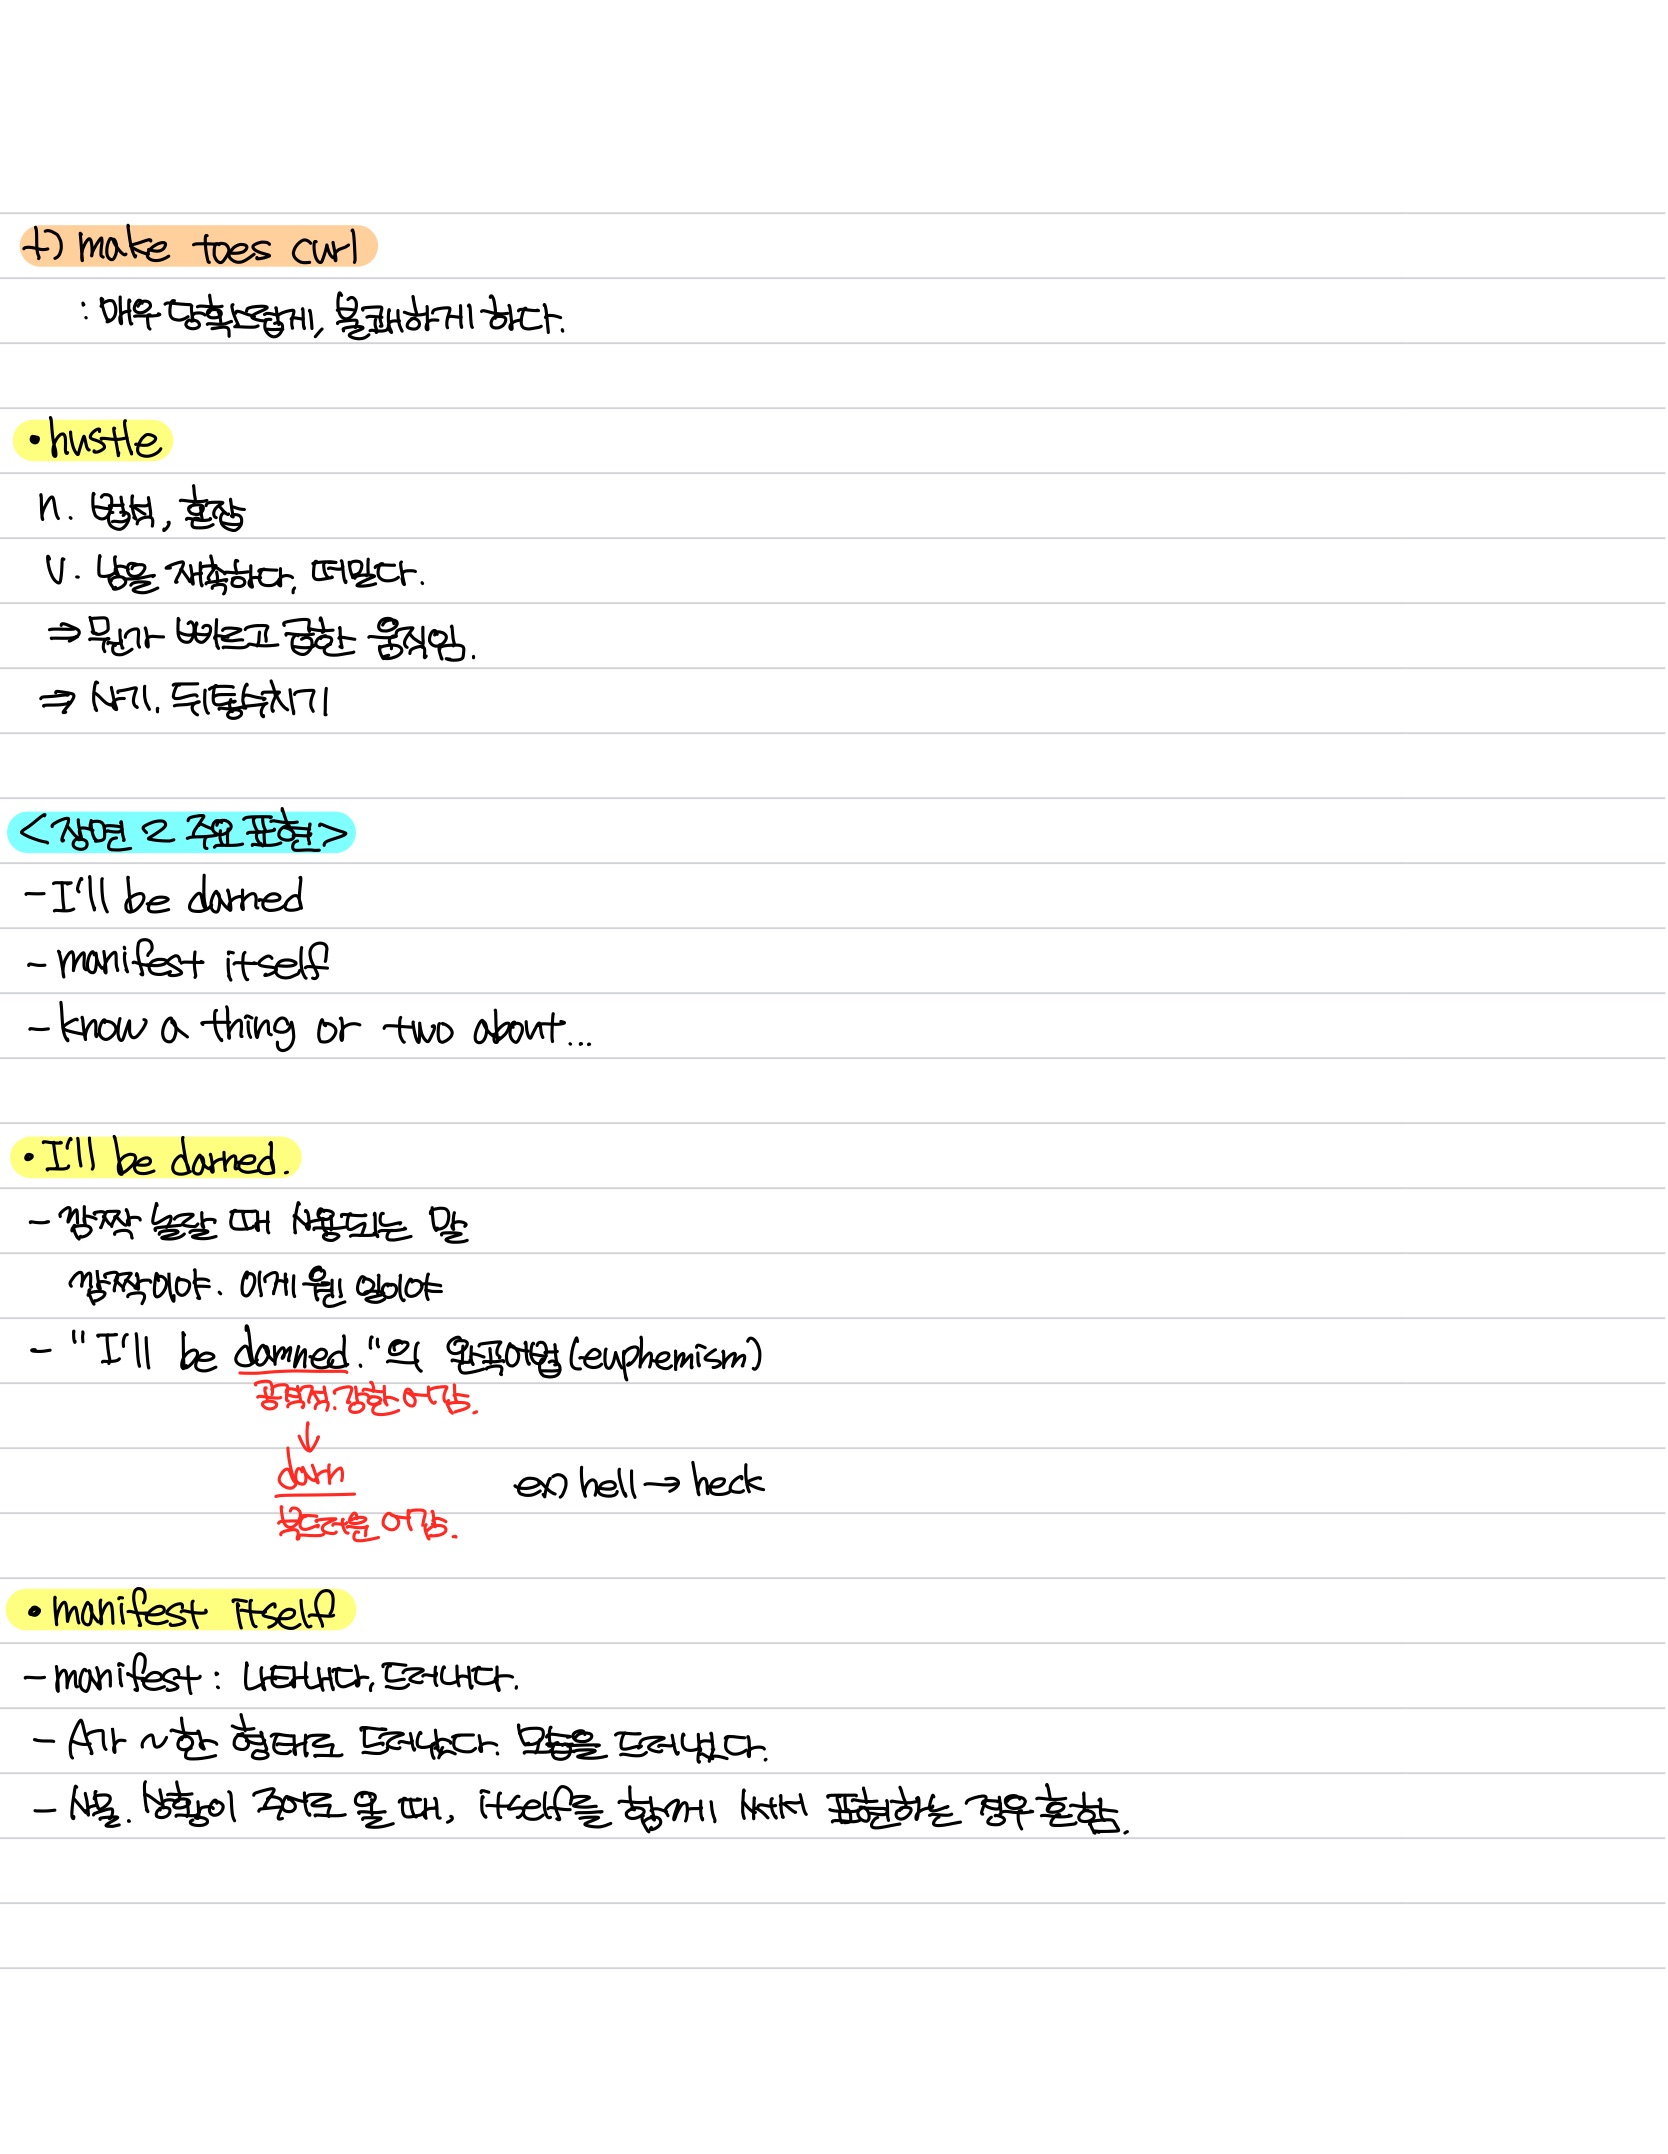 +) make toes curl
: 매우 당황스럽게, 불쾌하게 하다.
• hustle
n. 법석, 혼잡
v. 남을 재촉하다, 떠밀다.
⇒ 뭔가 빠르고 급한 움직임.
⇒ 사기. 뒤통수치기
<장면 2 주요 표현>
- I'll be darned
- manifest itself
- know a thing or two about...
• I'll be darned.
- 깜짝 놀랄 때 사용되는 말
깜짝이야. 이게 웬 일이야
- "I'll be damned."의 완곡어법(euphemism)
공격적. 강한 어감.
↓
darn
ex) hell → heck
부드러운 어감.
• manifest itself
- manifest : 나타내다, 드러내다.
- A가 ~한 형태로 드러났다. 모습을 드러냈다.
- 사물. 상황이 주어로 올 때, itself를 함께 써서 표현하는 경우 흔함.